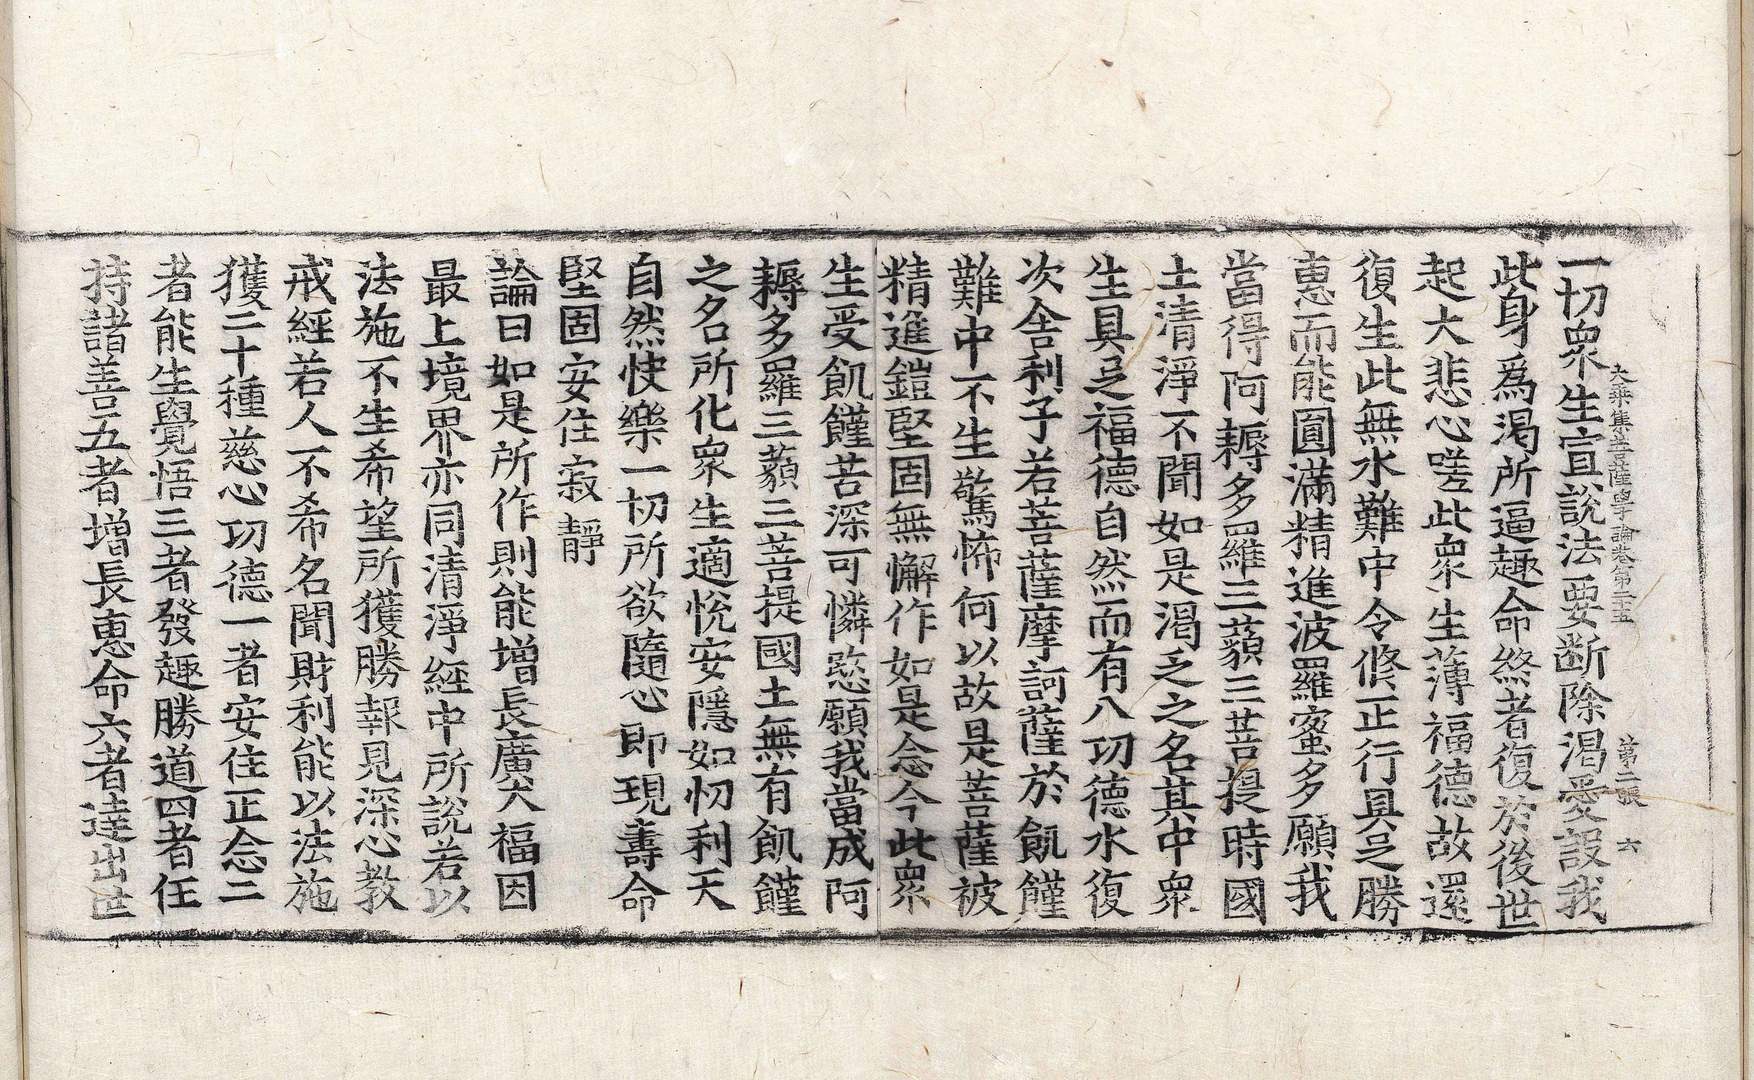 一切衆生宣說法要断除渴愛設我
大乘集菩薩學論卷第二十五 第二張 六
此身爲渴所逼趣命終者復於後世
起大悲心嗟此衆生薄福德故還
復生此無水難中令修正行具足勝
惠而能圓滿精進波羅蜜多願我
當得阿耨多羅三藐三菩提時國
土清淨不聞如是渴乏之名其中衆
生具足福德自然而有八功德水復
次舎利子若菩薩摩訶薩於飢饉
難中不生驚怖何以故是菩薩被
精進鎧堅固無懈作如是念今此衆
生受飢饉苦深可憐愍願我當成阿
耨多羅三藐三菩提國土無有飢饉
之名所化衆生適悅安隱如忉利天
自然快樂一切所欲隨心即現壽命
堅固安住寂靜
論曰如是所作則能增長廣大福因
最上境界亦同清淨經中所說若以
法施不生希望所獲勝報見深心教
戒經若人不希名聞財利能以法施
獲二十種慈心功德一者安住正念二
者能生覺悟三者發趣勝道四者任
持諸善五者增長惠命六者達出世